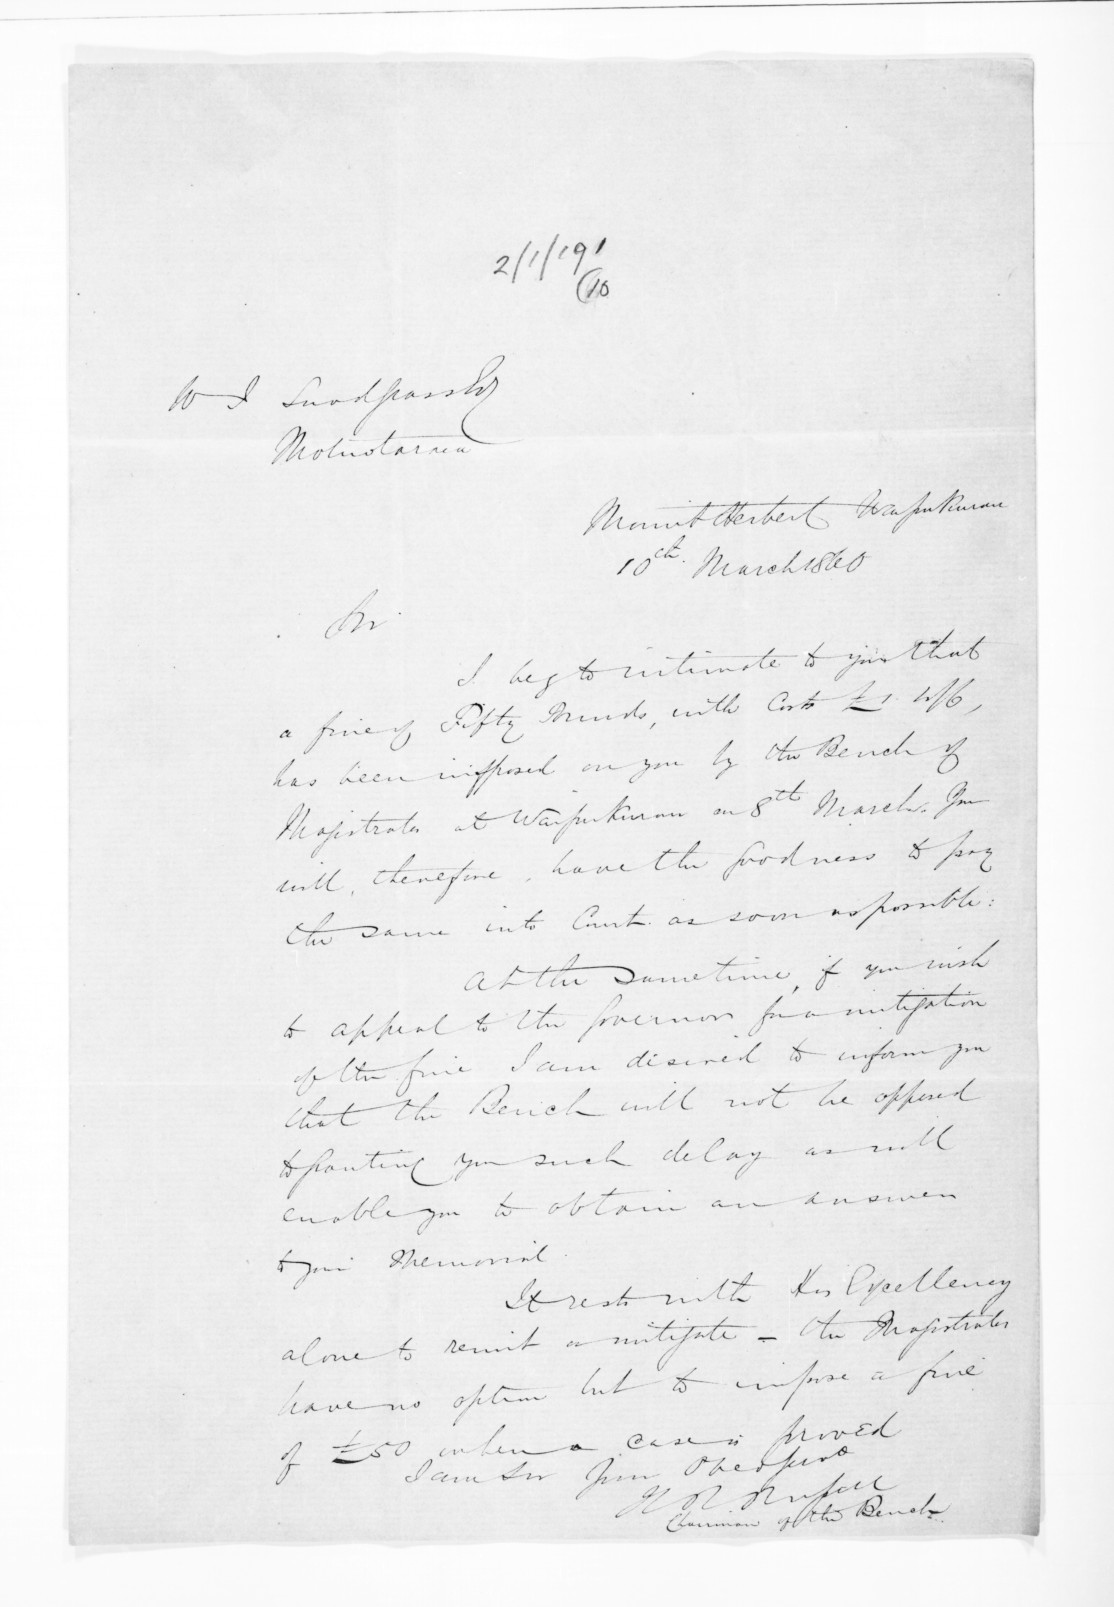 2/1/191
(10
W J Snodgrass Esq
Motuotaraia
Mount Herbert Waipukurau
10th March 1860
Sir
I beg to intimate to you that
a fine of Fifty Pounds, with Costs £1
has been imposed on you by the Bench of
Magistrates at Waipukurau on 8th March. You
will, therefore, have the goodness to pay
the same into Court as soon as possible:
At the same time, if you wish
to appeal to the Governor for a mitigation
of the fine I am desired to inform you
that the Bench will not be opposed
to granting you such delay as will
enable you to obtain an answer
to your Memorial.
It rests with His Excellency
alone to remit or mitigate - the Magistrates
have no option but to impose a fine
of £50 when a case is proved
I am Sir Your Obed Serv
H R Russell
Chairman of the Bench.